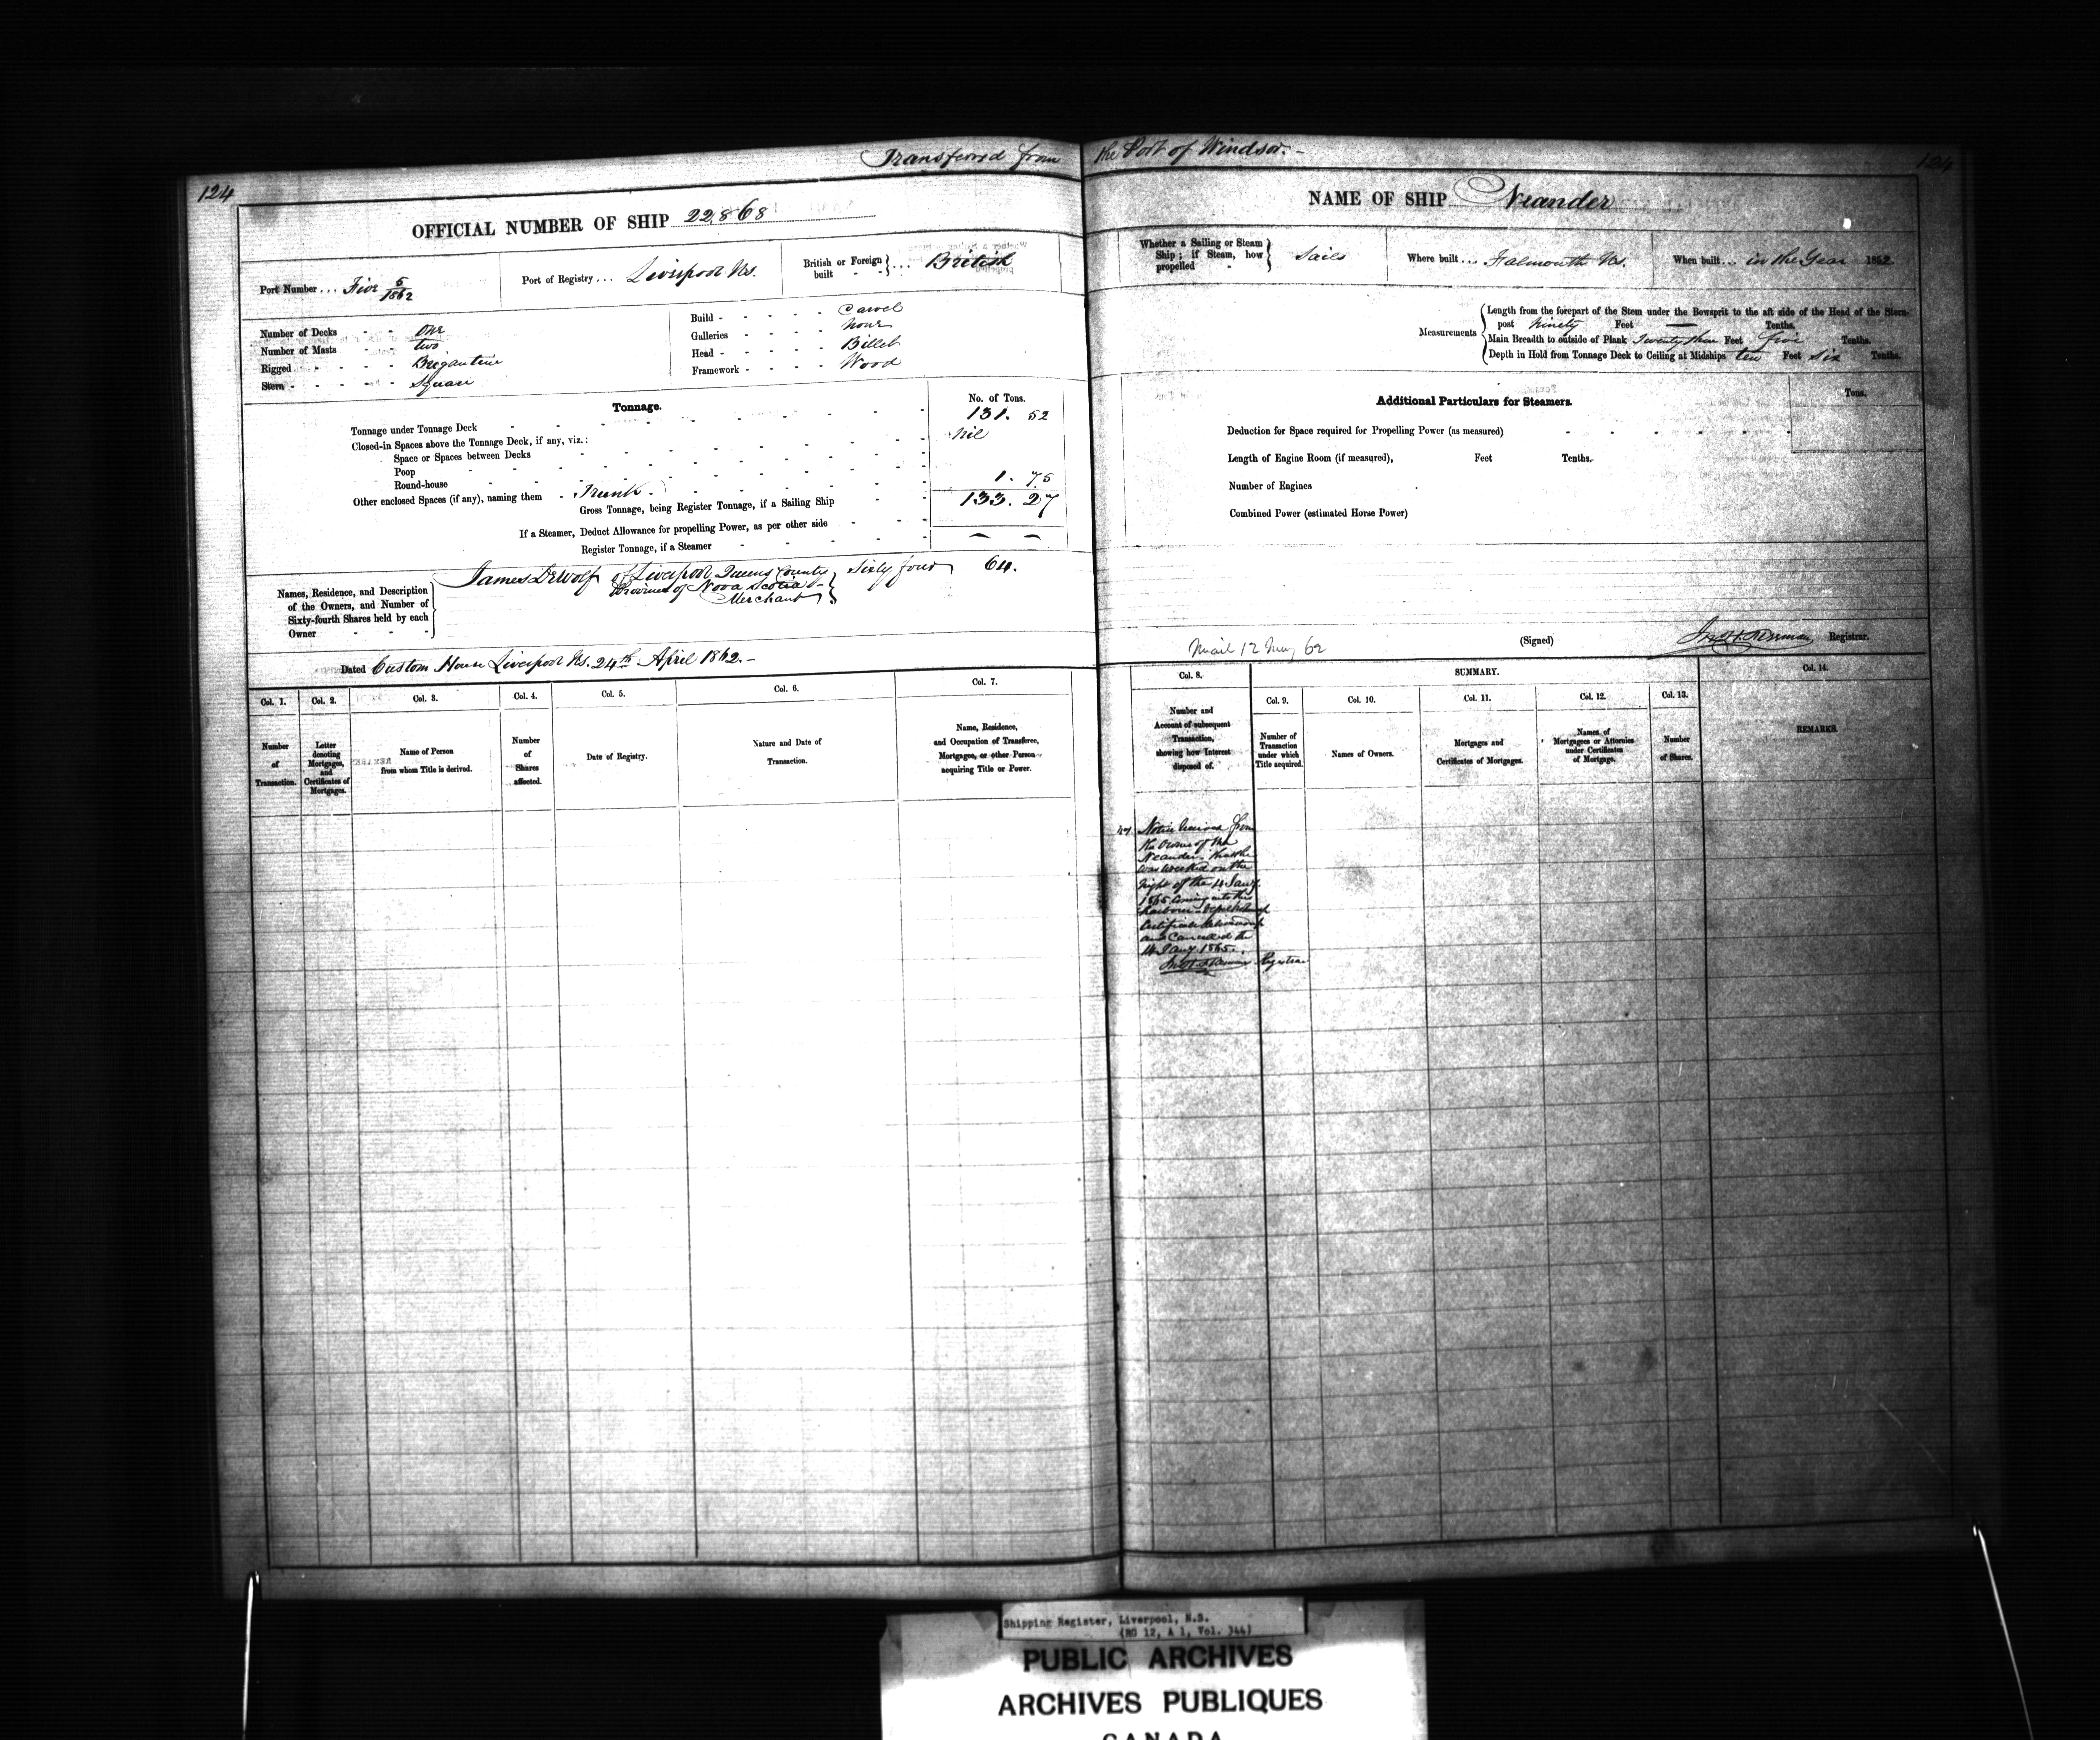 Transferred from the Port of Windsor. -
124
124
OFFICIAL NUMBER OF SHIP 22,868
NAME OF SHIP Neander
Port Number ... Five 5/1862
Port of Registry ... Liverpool Ns.
British or Foreign built - - } ... British
Whether a Sailing or Steam Ship; if Steam, how propelled - } Sails
Where built ... Falmouth Ns.
When built ... in the Year 1852
Number of Decks - - One
Number of Masts - - two
Rigged - - - - Brigantine
Stern - - - - - Square
Build - - - - - Carvel
Galleries - - - - None
Head - - - - - Billet
Framework - - - - Wood
Measurements
Length from the forepart of the Stem under the Bowsprit to the aft side of the Head of the Stern-
post Ninety Feet — Tenths.
Main Breadth to outside of Plank Twenty three Feet five Tenths.
Depth in Hold from Tonnage Deck to Ceiling at Midships ten Feet six Tenths.
Tonnage.
No. of Tons.
Tonnage under Tonnage Deck 131. 52
Closed-in Spaces above the Tonnage Deck, if any, viz.: Nil
Space or Spaces between Decks
Poop
Round-house
Other enclosed Spaces (if any), naming them - Trunk - 1. 75
Gross Tonnage, being Register Tonnage, if a Sailing Ship 133. 27
If a Steamer, Deduct Allowance for propelling Power, as per other side
Register Tonnage, if a Steamer
Additional Particulars for Steamers.
Tons.
Deduction for Space required for Propelling Power (as measured)
Length of Engine Room (if measured), Feet Tenths.
Number of Engines
Combined Power (estimated Horse Power)
Names, Residence, and Description
of the Owners, and Number of
Sixty-fourth Shares held by each
Owner - - -
James DeWolf of Liverpool Queens County Sixty four 64.
Province of Nova Scotia -
Merchant
Dated Custom House Liverpool Ns. 24th April 1862. -
Mail 12 May 62
(Signed) Registrar.
Col. 1. Number of Transaction.
Col. 2. Letter denoting Mortgages, and Certificates of Mortgages.
Col. 3. Name of Person from whom Title is derived.
Col. 4. Number of Shares affected.
Col. 5. Date of Registry.
Col. 6. Nature and Date of Transaction.
Col. 7. Name, Residence, and Occupation of Transferee, Mortgagee, or other Person acquiring Title or Power.
Col. 8. Number and Account of subsequent Transaction, showing how Interest disposed of.
SUMMARY.
Col. 9. Number of Transaction under which Title acquired.
Col. 10. Names of Owners.
Col. 11. Mortgages and Certificates of Mortgages.
Col. 12. Names of Mortgagees or Attornies under Certificates of Mortgage.
Col. 13. Number of Shares.
Col. 14. REMARKS.
Notice from
the Owner of the
Neander
was wrecked on the
night of the Jany
1865 coming into this
harbour
Certificate
and Cancelled the
14 Jany 1865.
Registrar
Shipping Register, Liverpool, N.S.
(RG 12, A 1, Vol. 344)
PUBLIC ARCHIVES
ARCHIVES PUBLIQUES
CANADA